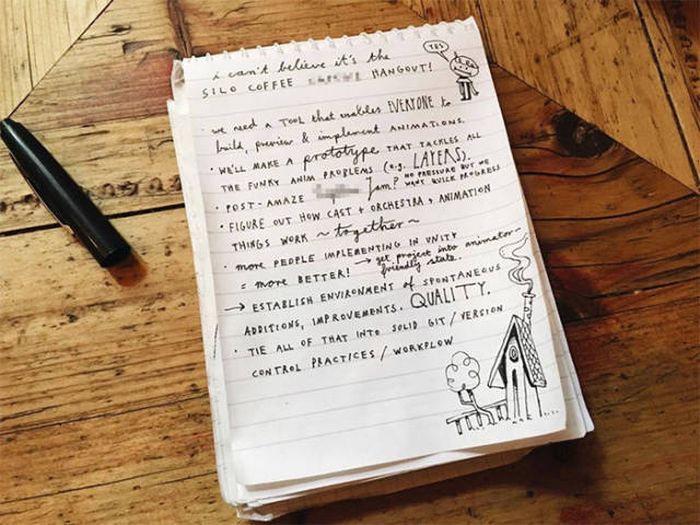 i can't believe it's the
SILO COFFEE HANGOUT!
YES
• WE NEED A TOOL that enables EVERYONE to
build, preview & implement ANIMATIONS.
• WE'LL MAKE A prototype THAT TACKLES ALL
THE FUNKY ANIM PROBLEMS (e.g. LAYERS).
• POST-AMAZE Jam? NO PRESSURE BUT WE
WANT QUICK PROGRESS
• FIGURE OUT HOW CAST + ORCHESTRA + ANIMATION
THINGS WORK ~together~
• MORE PEOPLE IMPLEMENTING IN UNITY
= MORE BETTER! → get project into animator-
friendly state.
→ ESTABLISH ENVIRONMENT of SPONTANEOUS
ADDITIONS, IMPROVEMENTS. QUALITY.
• TIE ALL OF THAT INTO SOLID GIT / VERSION
CONTROL PRACTICES / WORKFLOW